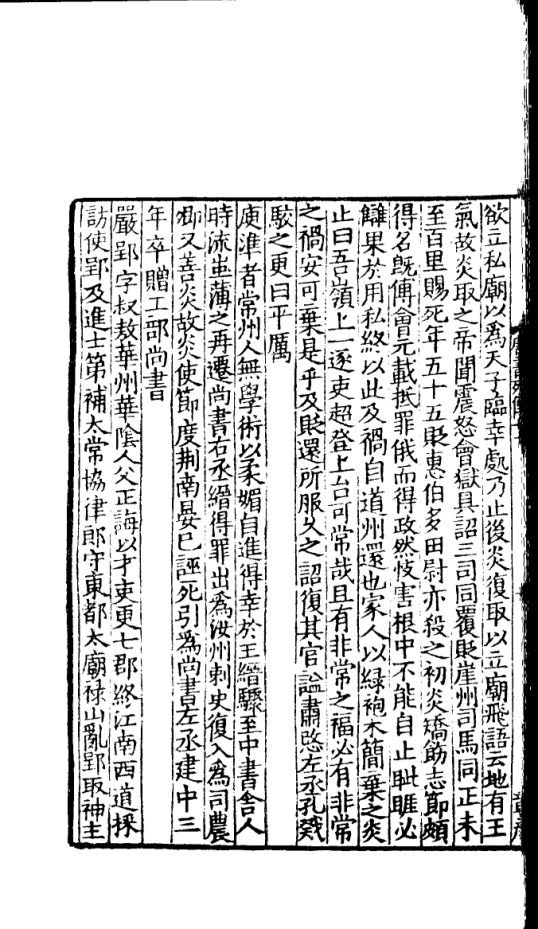 欲立私廟以為天子臨幸處乃止後炎復取以立廟飛語云地有王
氣故炎取之帝聞震怒會獄具詔三司同覆貶崖州司馬同正未
至百里賜死年五十五貶惠伯多田尉亦殺之初炎矯飭志節頗
得名既傅會元載抵罪俄而得政然忮害根中不能自止眦睚必
讎果於用私終以此及禍自道州還也家人以綠袍木簡棄之炎
止曰吾嶺上一逐吏超登上台可常哉且有非常之福必有非常
之禍安可棄是乎及貶還所服久之詔復其官諡肅愍左丞孔戣
駮之更曰平厲
庾準者常州人無學術以柔媚自進得幸於王縉驟至中書舍人
時流蚩薄之再遷尚書右丞縉得罪出為汝州刺史復入為司農
卿又善炎故炎使節度荆南晏已誣死引為尚書左丞建中三
年卒贈工部尚書
嚴郢字叔敖華州華陰人父正誨以才吏更七郡終江南西道採
訪使郢及進士第補太常協律郎守東都太廟祿山亂郢取神主